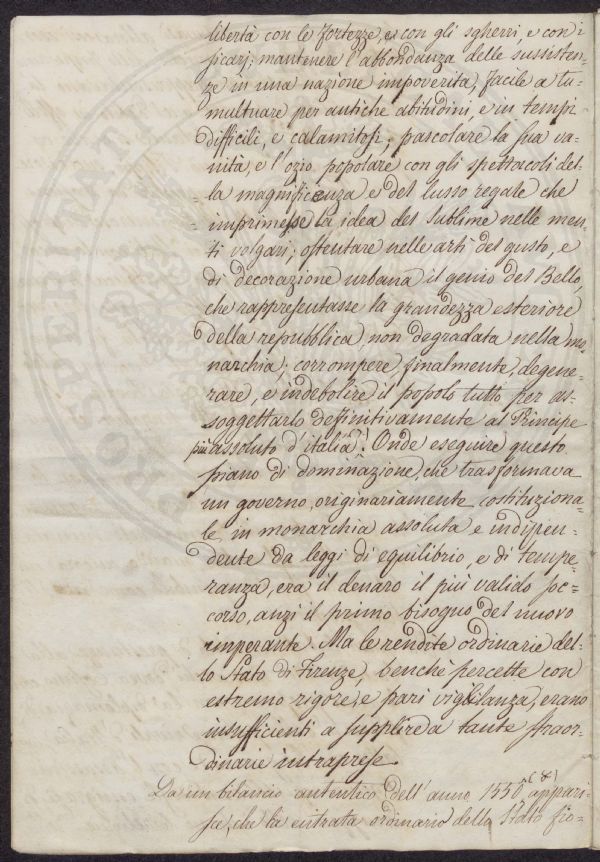 libertà con le fortezze, e con gli sgherri, e con i
sicarj; mantenere l'abbondanza delle sussisten=
ze in una nazione impoverita, facile a tu=
multuare per antiche abitudini, e in tempi
difficili, e calamitosi; pascolare la sua va=
nità, e l'ozio popolare con gli spettacoli del=
la magnificenza e del lusso regale che
imprimesse la idea del sublime nelle men=
ti volgari; ostentare nelle arti del gusto, e
di decorazione urbana il genio del Bello,
che rappresentasse la grandezza esteriore
della repubblica non degradata nella mo=
narchia; corrompere, finalmente, degene=
rare, e indebolire il popolo tutto per as=
soggettarlo definitivamente al Principe
più assoluto d'italia! Onde eseguire questo
piano di dominazione, che trasformava
un governo, originariamente costituziona=
le, in monarchia assoluta e indipen=
dente da leggi di equilibrio, e di tempe=
ranza, era il denaro il più valido soc=
corso, anzi il primo bisogno del nuovo
imperante. Ma le rendite ordinarie del=
lo Stato di Firenze, benchè percette con
estremo rigore, e pari vigilanza, erano
insufficienti a supplire a tante straor=
dinarie intraprese.
Da un bilancio autentico dell'anno 1550 appari=
sce, che la entrata ordinario dello Stato fio=
PROSPERITATI